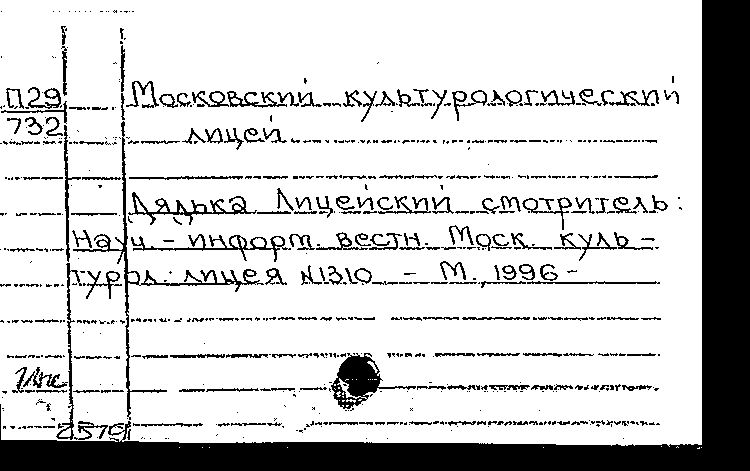 П29
732
Московский культурологический
лицей
Дядька Лицейский смотритель:
Науч - информ. вестн. Моск. куль -
турол. лицея N1310 - М., 1996 -